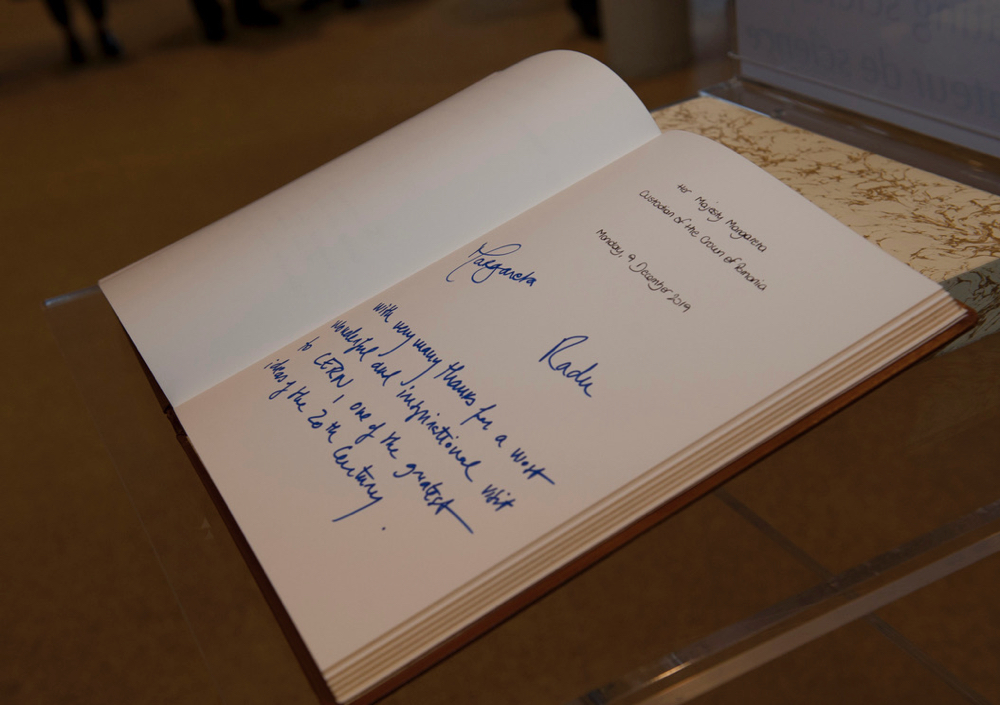 Her Majesty Margareta
Custodian of the Crown of Romania
Monday, 9 December 2019
Margareta
Radu
with very many thanks for a most
wonderful and inspirational visit
to CERN, one of the greatest
ideas of the 20th Century.
sting scien
teur de science